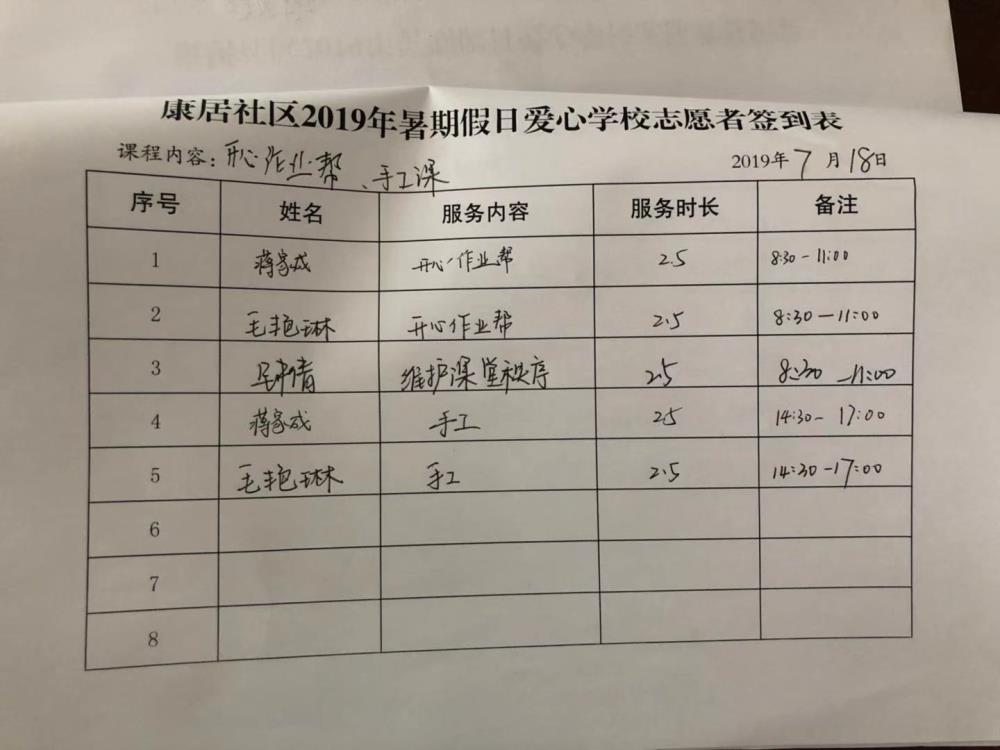 康居社区2019年暑期假日爱心学校志愿者签到表
课程内容：开心作业帮、手工课 2019年7月18日
序号 姓名 服务内容 服务时长 备注
1 蒋家成 开心作业帮 2.5 8:30-11:00
2 毛艳琳 开心作业帮 2.5 8:30-11:00
3 倩 维护课堂秩序 2.5 8:30-11:00
4 蒋家成 手工 2.5 14:30-17:00
5 毛艳琳 手工 2.5 14:30-17:00
6
7
8